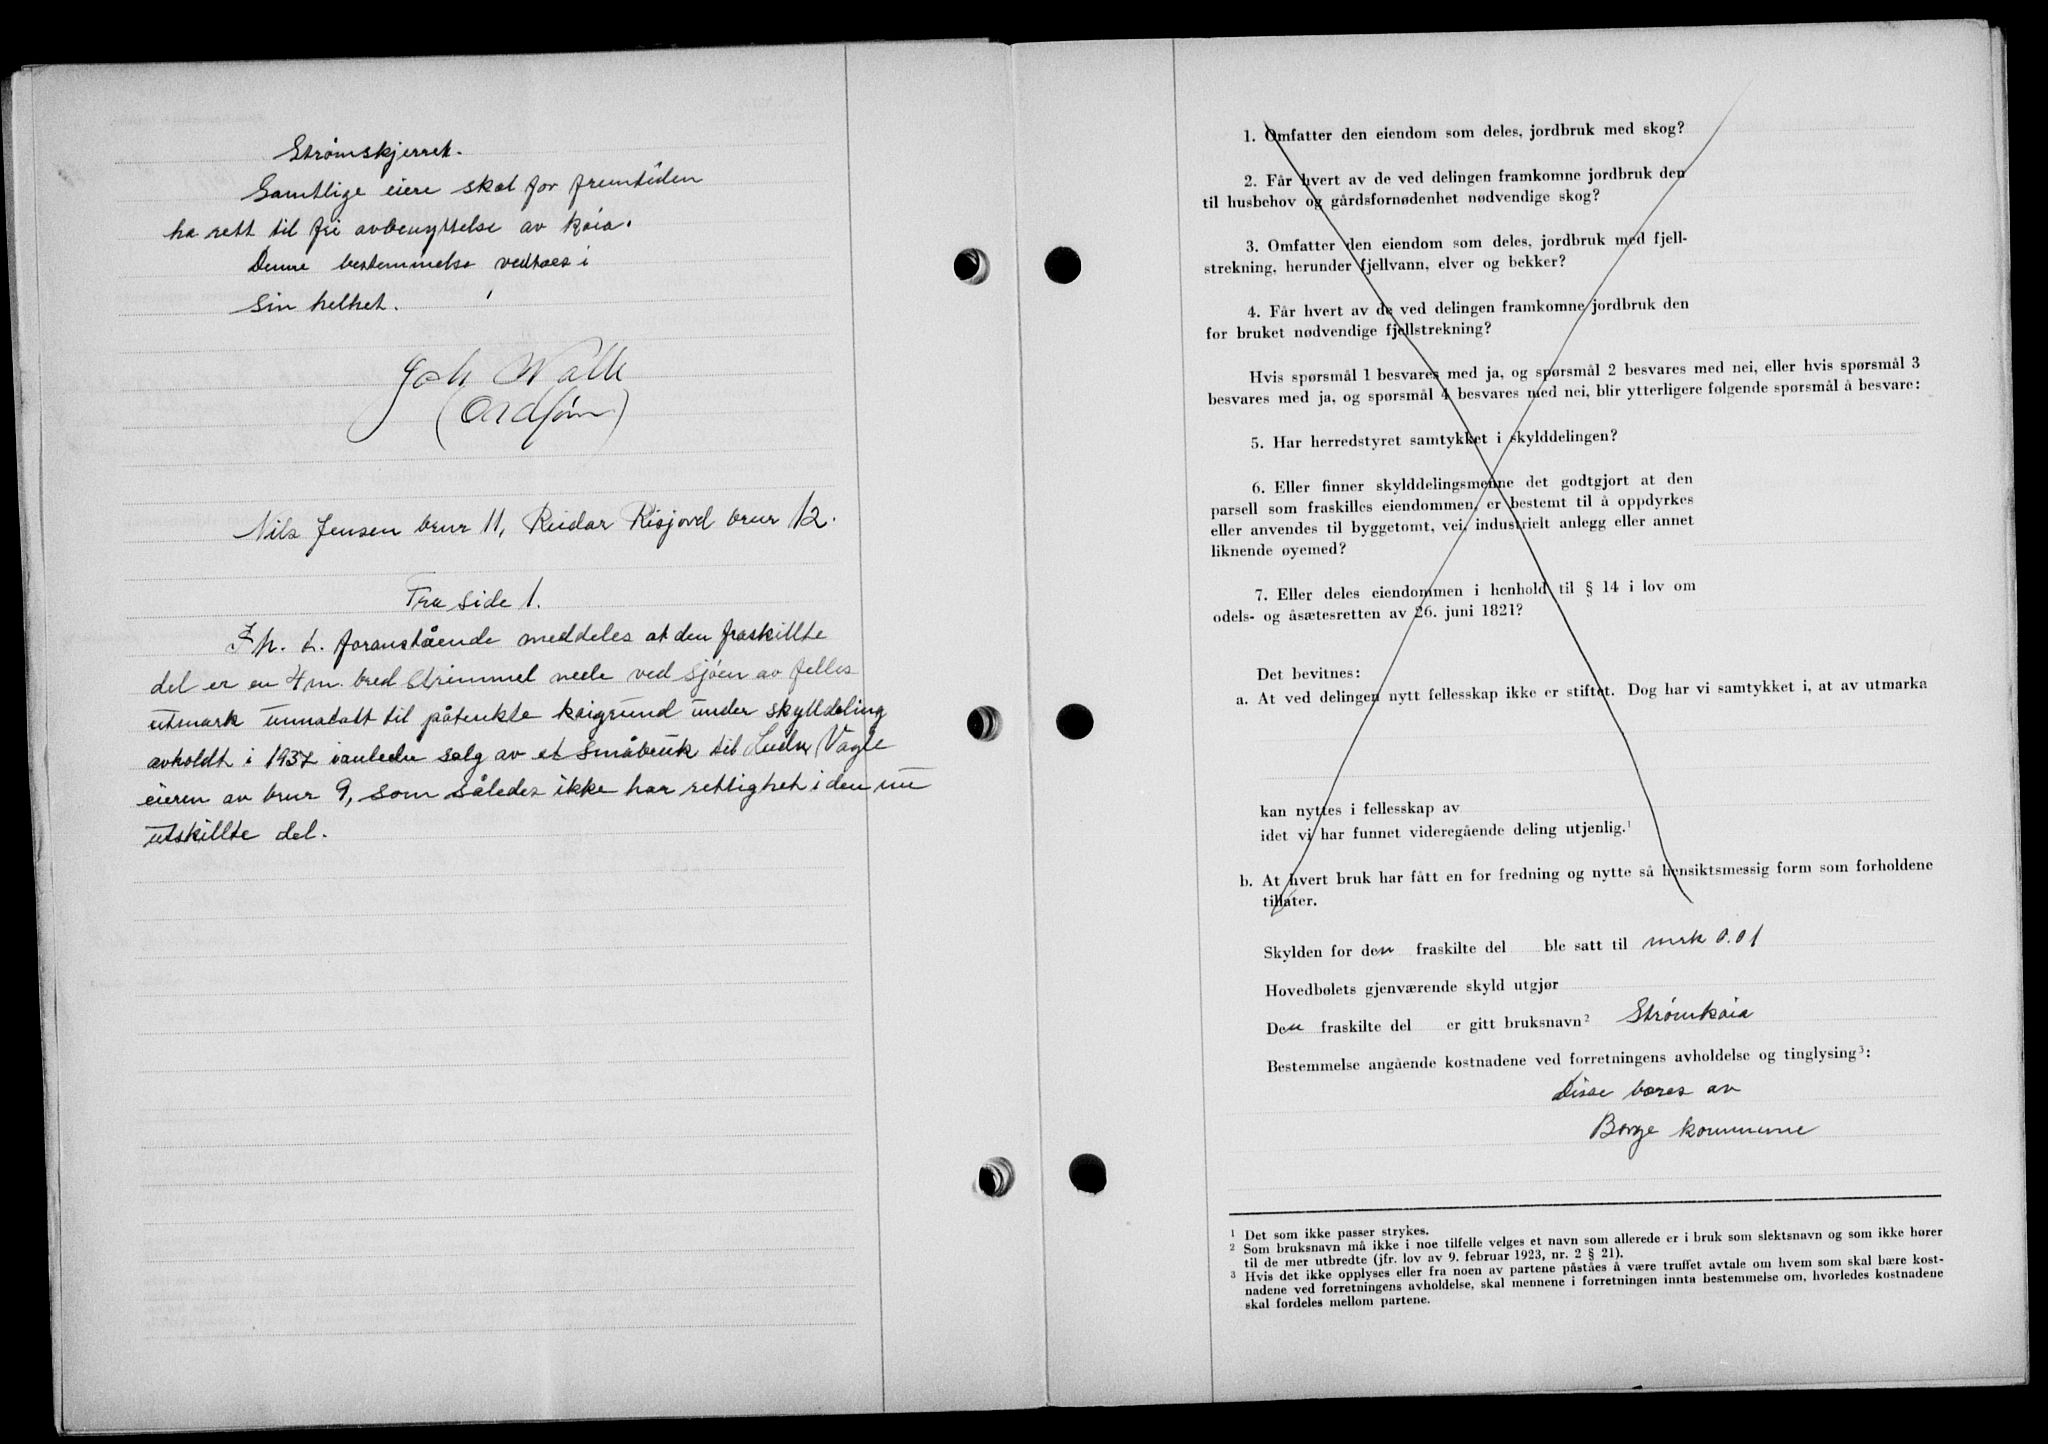 Strømskjerret.
Samtlige eiere skal for fremtiden
ha rett til fri avbenyttelse av kaia.
Denne bestemmelse vedtaes i
sin helhet.
Joh
(Ordfører)
Nils Jensen brnr 11, Reidar Risjord brnr 12.
Fra side 1.
I h. t. foranstående meddeles at den fraskillte
del er en 4 m. bred strimmel nede ved sjøen av felles
utmark unnatatt til påtenkte kaigrund under skylldeling
avholdt i 1937 i anledn salg av et småbruk til Vagle
eieren av brnr 9, som således ikke har rettighet i den nu
utskillte del.
1. Omfatter den eiendom som deles, jordbruk med skog?
2. Får hvert av de ved delingen framkomne jordbruk den
til husbehov og gårdsfornødenhet nødvendige skog?
3. Omfatter den eiendom som deles, jordbruk med fjell-
strekning, herunder fjellvann, elver og bekker?
4. Får hvert av de ved delingen framkomne jordbruk den
for bruket nødvendige fjellstrekning?
Hvis spørsmål 1 besvares med ja, og spørsmål 2 besvares med nei, eller hvis spørsmål 3
besvares med ja, og spørsmål 4 besvares med nei, blir ytterligere følgende spørsmål å besvare:
5. Har herredstyret samtykket i skylddelingen?
6. Eller finner skylddelingsmenne det godtgjort at den
parsell som fraskilles eiendommen, er bestemt til å oppdyrkes
eller anvendes til byggetomt, vei, industrielt anlegg eller annet
liknende øyemed?
7. Eller deles eiendommen i henhold til § 14 i lov om
odels- og åsætesretten av 26. juni 1821?
Det bevitnes:
a. At ved delingen nytt fellesskap ikke er stiftet. Dog har vi samtykket i, at av utmarka
kan nyttes i fellesskap av
idet vi har funnet videregående deling utjenlig.¹
b. At hvert bruk har fått en for fredning og nytte så hensiktsmessig form som forholdene
tillater.
Skylden for den fraskilte del ble satt til mrk 0.01
Hovedbølets gjenværende skyld utgjør
Den fraskilte del er gitt bruksnavn² Strømkaia
Bestemmelse angående kostnadene ved forretningens avholdelse og tinglysing³:
Disse bæres av
Borge kommune
¹ Det som ikke passer strykes.
² Som bruksnavn må ikke i noe tilfelle velges et navn som allerede er i bruk som slektsnavn og som ikke hører
til de mer utbredte (jfr. lov av 9. februar 1923, nr. 2 § 21).
³ Hvis det ikke opplyses eller fra noen av partene påståes å være truffet avtale om hvem som skal bære kost-
nadene ved forretningens avholdelse, skal mennene i forretningen innta bestemmelse om, hvorledes kostnadene
skal fordeles mellom partene.